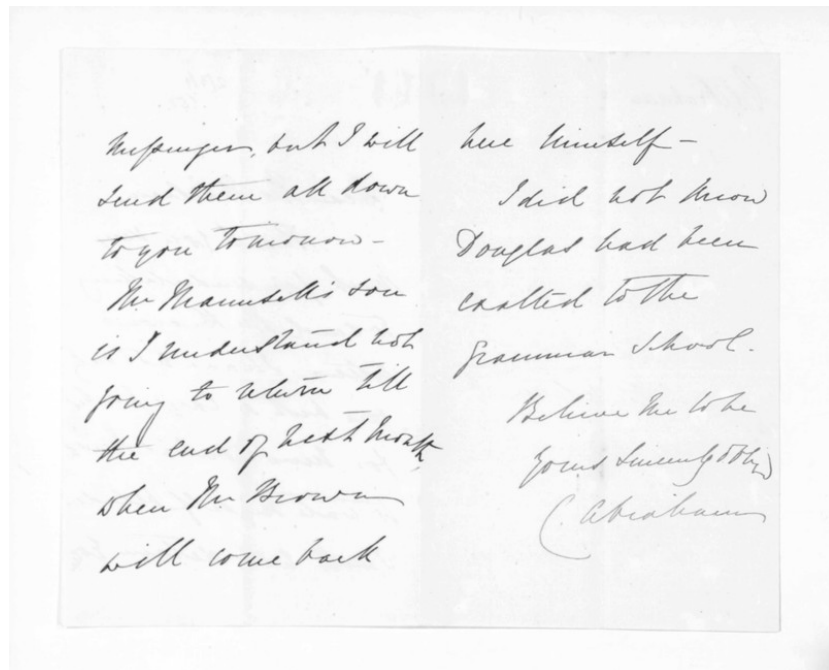 Messenger, but I will
send them all down
to you tomorrow -
Mr Maunsell's son
is I understand not
going to return till
the end of next month,
when Mr Brown
will come back
here himself -
I did not know
Douglas had been
exalted to the
Grammar School.
Believe me to be
Yours sincerely obliged
C. Abraham